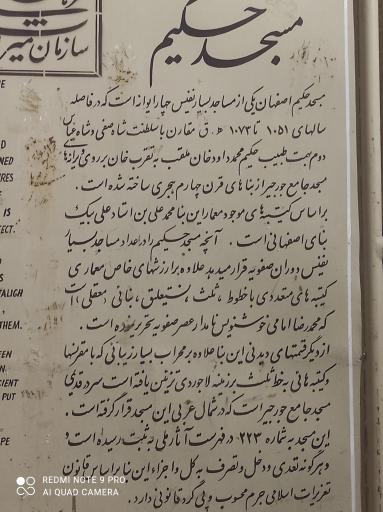 سازمان میر
مسجد حکیم
مسجد حکیم اصفهان یکی از مساجد بسیار نفیس چهار ایوانه است که در فاصله
سالهای ۱۰۵۱ تا ۱۰۷۳ ه‍.ق مقارن با سلطنت شاه صفی و شاه عباس
دوم بهمت طبیب حکیم محمد داود خان ملقب به تقرب خان بر روی ویرانه‌های
مسجد جامع جورجیر از بناهای قرن چهارم هجری ساخته شده است.
بر اساس کتیبه‌های موجود معمار این بنا محمد علی بن استاد علی بیک
بنای اصفهانی است. آنچه مسجد حکیم را در اعداد مساجد بسیار
نفیس دوران صفویه قرار میدهد علاوه بر ارزشهای خاص معماری
کتیبه‌های متعددی با خطوط، ثلث، نستعلیق، بنائی (معقلی) است
که محمد رضا امامی خوشنویس نامدار عصر صفویه تحریر نموده است.
از دیگر قسمتهای دیدنی این بنا علاوه بر محراب بسیار زیبائی که با مقرنسها
و کتیبه‌هائی به خط ثلث بر زمینه لاجوردی تزئین یافته است سردر قدیمی
مسجد جامع جورجیر است که در شمال غربی این مسجد قرار گرفته است.
این مسجد به شماره ۲۲۳ در فهرست آثار ملی به ثبت رسیده است و
هر گونه تعدی و دخل و تصرف به کل و اجزاء این بنا بر اساس قانون
تعزیرات اسلامی جرم محسوب و پی‌گرد قانونی دارد.
D
NED
URES
IS
TECT.
D
S
TALIGH
,
THEM.
EEN
N.
CIENT
PUT
PE
REDMI NOTE 9 PRO
AI QUAD CAMERA